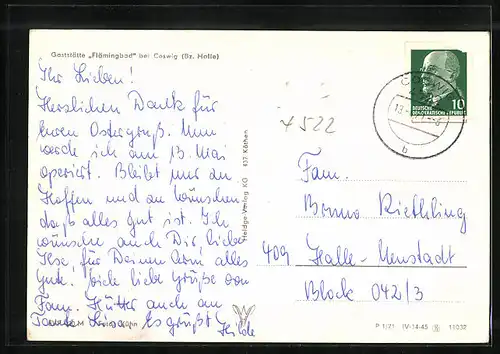 Gaststätte „Flämingbad" bei Coswig (Bz. Halle)
Ihr Lieben!
Herzlichen Dank für
Euren Ostergruß. Nun
werde ich am 13. Mai
operiert. Bleibt nur zu
Hoffen und zu wünschen
daß alles gut ist. Ich
wünsche auch Dir liebe
Ilse, für Deinen Arm alles
Gute. Viele liebe Grüße von
Fam. Hütter auch an
Tante Lina. Es grüßt Hilde
Heldge-Verlag KG 437 Köthen
4522
10
DEUTSCHE
DEMOKRATISCHE REPUBLIK
b
Fam.
Bruno Riethling
409 Halle-Neustadt
Block 042/3
P 1/71 IV-14-45 11032